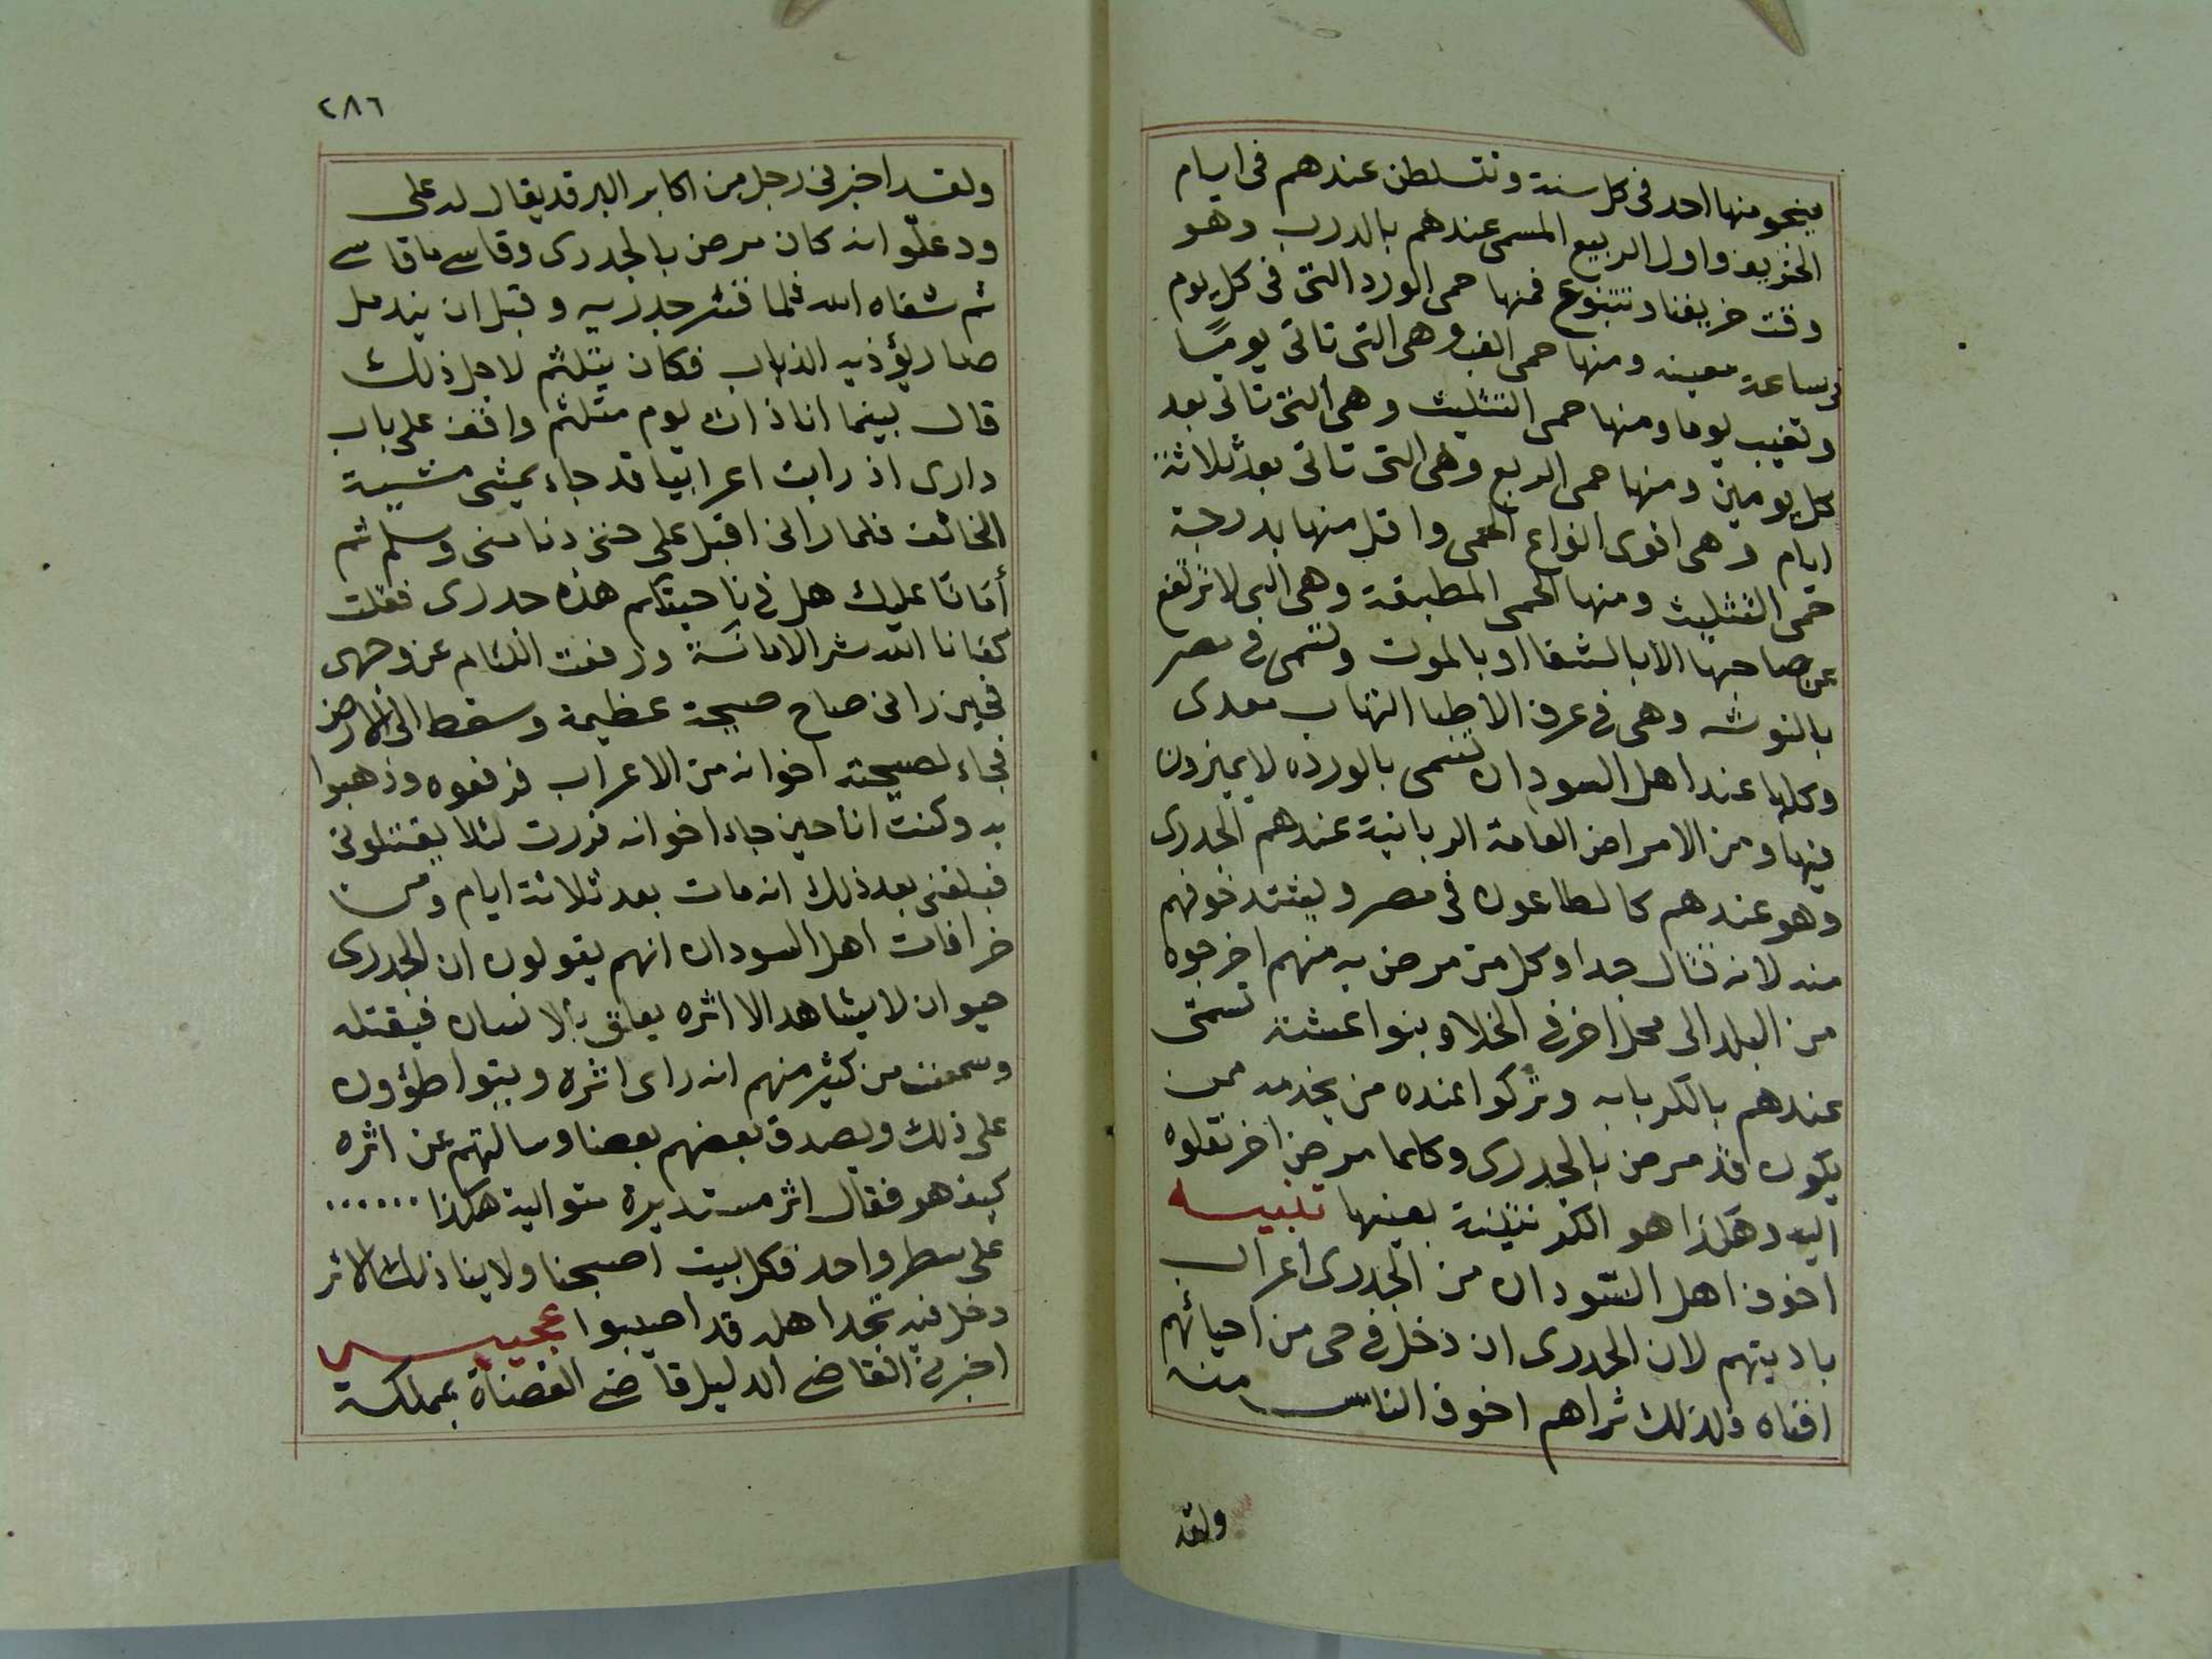 ينجو منها احد فى كل سنة وتتسلطن عندهم فى ايام
الخريف واول الربيع المسمى عندهم بالدرب وهو
وقت خريفنا وتتنوع فمنها حمى الورد التى فى كل يوم
فى ساعة معينه ومنها حمى الغب وهى التى تاتى يومًا
وتغيب يوما ومنها حمى التثليث وهى التى تاتى بعد
كل يومين ومنها حمى الربع وهى التى تاتى بعد ثلاثة
ايام وهى اقوى انواع الحمى واقل منها بدرجة
حمى التثليث ومنها الحمى المطبقة وهى التى لا ترتفع
عن صاحبها الا بالشفا او بالموت وتسمى فى مصر
بالنوشه وهى فى عرف الاطبا التهاب معدى
وكلها عند اهل السودان تسمى بالورده لا يميزون
فيها ومن الامراض العامة الربانية عندهم الجدرى
وهو عندهم كالطاعون فى مصر ويشتد خوفهم
منه لانه قتال جدا وكل من مرض به منهم اخرجوه
من البلد الى محل اخر فى الخلا وبنوا عشة تسمى
عندهم بالكربابه وتركوا عنده من يخدمه ممن
يكون قد مرض بالجدرى وكلما مرض اخر نقلوه
اليه وهكذا هو الكرنتينة بعينها تنبيه
اخوف اهل السودان من الجدرى اعراب
باديتهم لان الجدرى ان دخل فى حى من احيائهم
افناه ولذلك تراهم اخوف الناس منه
ولقد
٢٨٦
ولقد اخبرنى رجل من اكابر البرقد يقال له على
ود علّو انه كان مرض بالجدرى وقاسے ما قاسے
ثم شفاه الله فلما قشر جدريه وقبل ان يندمل
صار يؤذيه الذباب فكان يتلثم لاجل ذلك
قال بينما انا ذات يوم متلثم واقف على باب
دارى اذ رايت اعرابيا قد جاء يمشى مشية
الخائف فلما رانى اقبل على حتى دنا منى وسلم ثم
أمانًا عليك هل فى ناحيتكم هذه جدرى فقلت
كفانا الله شر الامانة ورفعت اللثام عن وجهى
فحين رانى صاح صيحة عظيمة وسقط الى الارض
فجاء لصيحته اخوانه من الاعراب فرفعوه وذهبوا
به وكنت انا حين جاء اخوانه فررت لئلا يقتلونى
فبلغنى بعد ذلك انه مات بعد ثلاثة ايام ومن
خرافات اهل السودان انهم يقولون ان الجدرى
حيوان لا يشاهد الا اثره يعلق بالانسان فيقتله
وسمعت من كثير منهم انه راى اثره ويتواطؤون
على ذلك ويصدق بعضهم بعضا وسالتهم عن اثره
كيف هو فقال اثر مستديرة متوالية هكذا ......
على سطر واحد فكل بيت اصبحنا ولاينا ذلك الاثر
دخل فيه نجد اهله قد اصيبوا عجيبه
اخبرنى القاضے الدليل قاضے القضاة بمملكة